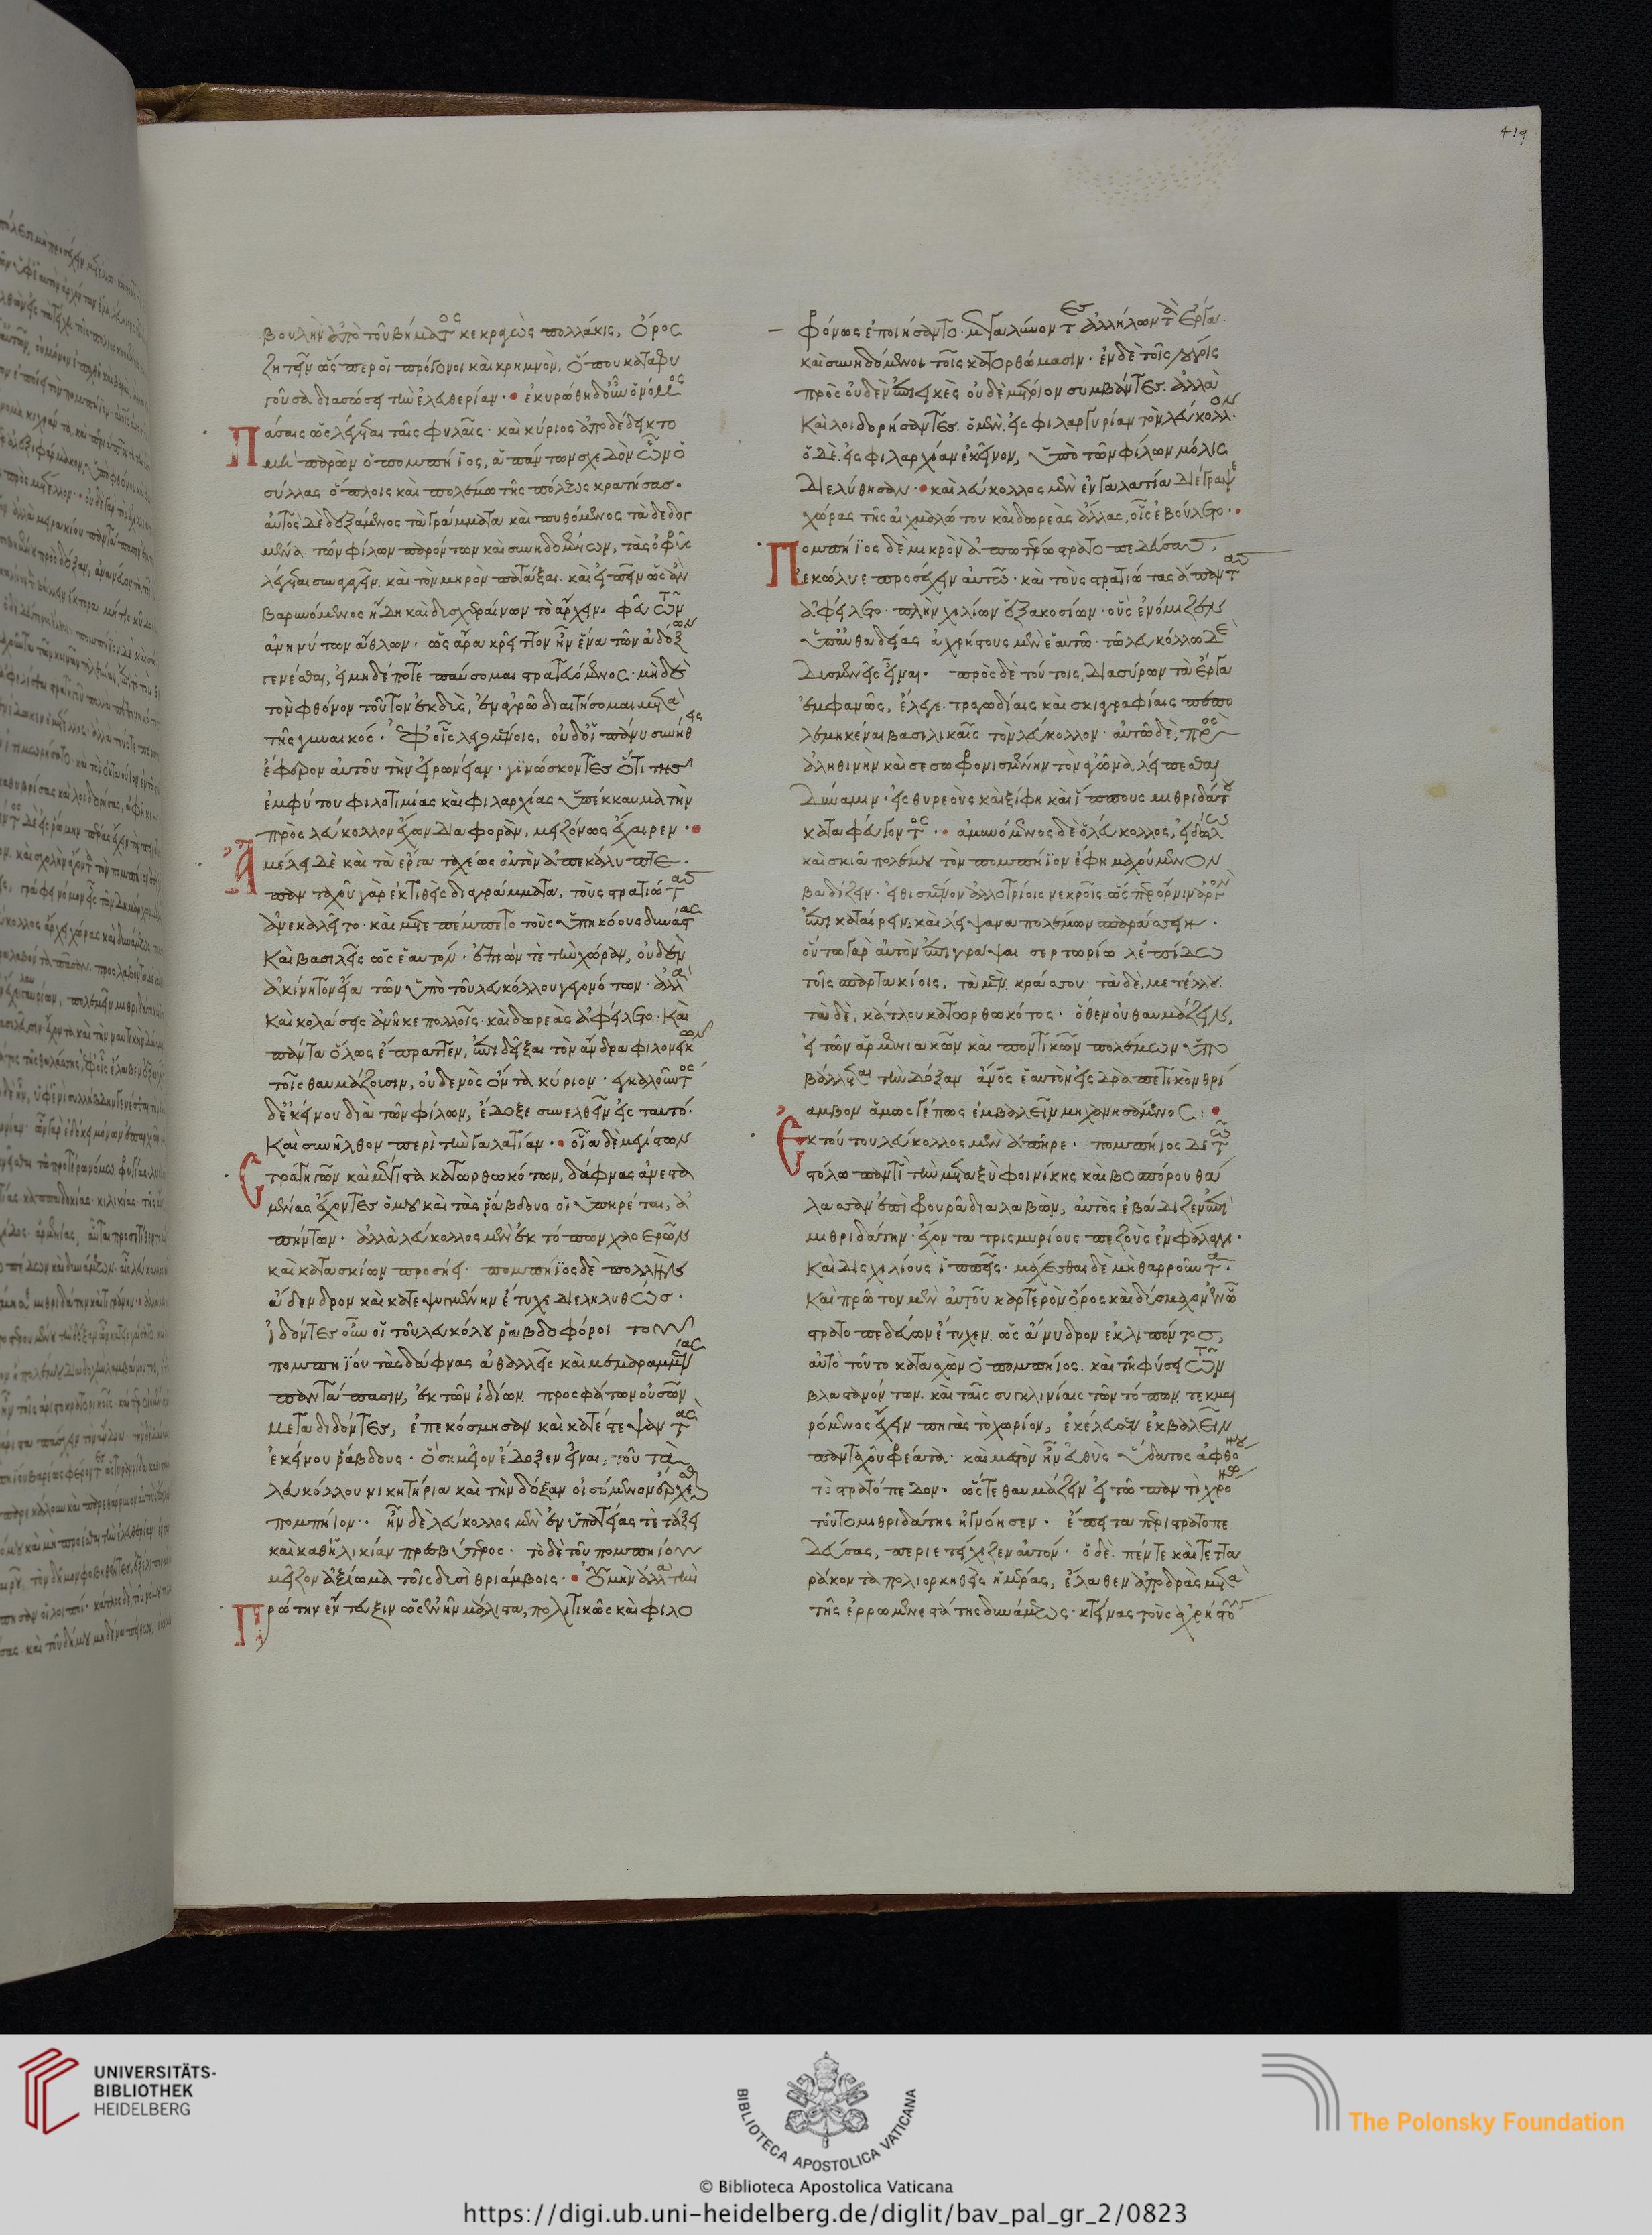 βουλὴν ἀπὸ τοῦ βήματος κεκραγὼς πολλάκις, ὄρος
ζητεῖν ὥσπερ οἱ πρόγονοι καὶ κρημνὸν, ὅπου καταφυ
γοῦσα διασώσει τὴν ἐλευθερίαν· ἐκυρώθη δ' οὖν ὁ νόμος
Πάσαις ὡς λέγεται ταῖς φυλαῖς· καὶ κύριος ἀποδέδεικτο
μὴ παρὼν ὁ πομπήϊος, ἁπάντων σχεδὸν ὧν ὁ
σύλλας ὅπλοις καὶ πολέμω τῆς πόλεως κρατήσας·
αὐτὸς δὲ δεξάμενος τὰ γράμματα καὶ πυθόμενος τὰ δεδογ
μένα τῶν φίλων παρόντων καὶ συνηδομένων, τὰς ὀφρῦς
λέγεται συναγαγεῖν. καὶ τὸν μηρὸν πατάξαι. καὶ εἰπεῖν ὡς ἂν
βαρυνόμενος ἤδη καὶ δυσχεραίνων τὸ ἄρχειν. φεῦ τῶν
ἀνηνύτων ἄθλων· ὡς ἄρα κρεῖττον ἦν ἕνα τῶν ἀδόξων
γενέσθαι, εἰ μηδέποτε παύσομαι στρατευόμενος. μηδὲ
τὸν φθόνον τοῦτον ἐκδὺς, ἐν ἀγρῶ διαιτήσομαι μετὰ
τῆς γυναικός. ἐφ' οἷς λεγομένοις, οὐδ' οἱ πάνυ συνήθεις
ἔφερον αὐτοῦ τὴν εἰρωνείαν· γινώσκοντες ὅτι τῆς
ἐμφύτου φιλοτιμίας καὶ φιλαρχίας ὑπέκκαυμα τὴν
πρὸς λεύκολλον ἔχων διαφορὰν, μειζόνως ἔχαιρεν·
Ἀμέλει δὲ καὶ τὰ ἔργα ταχέως αὐτὸν ἀπεκάλυπτε.
πανταχοῦ γὰρ ἐκτιθεὶς διαγράμματα, τοὺς στρατιώτας
ἀνεκαλεῖτο· καὶ μετεπέμπετο τοὺς ὑπηκόους δυνάστας
καὶ βασιλεῖς ὡς ἑαυτόν· ἐπιών τε τὴν χώραν, οὐδὲν
ἀκίνητον εἴα τῶν ὑπὸ τοῦ λευκόλλου γεγονότων· ἀλλὰ
καὶ κολάσεις ἀνῆκε πολλοῖς· καὶ δωρεὰς ἀφείλετο· καὶ
πάντα ὅλως ἔπραττεν, ἐπιδεῖξαι τὸν ἄνδρα φιλονεικῶν
τοῖς θαυμάζουσιν, οὐδενὸς ὄντα κύριον· ἐγκαλοῦντος
δ' ἐκείνου διὰ τῶν φίλων, ἔδοξε συνελθεῖν εἰς ταυτό·
καὶ συνῆλθον περὶ τὴν γαλατίαν. οἷα δὲ μεγίστων
Στρατηγῶν καὶ μέγιστα κατωρθωκότων, δάφναις ἀνεστε
μμένας ἔχοντες ὁμοῦ καὶ τὰς ῥάβδους οἱ ὑπηρέται, ἀ
πήντων· ἀλλὰ λεύκολλος μὲν ἐκ τόπων χλοερῶν
καὶ κατασκίων προσῄει· πομπήϊος δὲ πολλὴν
ἄδενδρον καὶ κατεψυγμένην ἔτυχε διεληλυθὼς·
ἰδόντες οὖν οἱ τοῦ λευκόλου ῥαβδοφόροι τοῦ
πομπηΐου τὰς δάφνας ἀθαλλεῖς καὶ μεμαραμμένας
παντάπασιν, ἐκ τῶν ἰδίων προσφάτων οὐσῶν
μεταδιδόντες, ἐπεκόσμησαν καὶ κατέστεψαν τὰς
ἐκείνου ῥάβδους· ὃ σημεῖον ἔδοξεν εἶναι, τοῦ τὰ
λευκόλλου νικητήρια καὶ τὴν δόξαν οἰσόμενον ἔρχεσθαι
πομπήϊον. ἦν δὲ λεύκολλος μὲν ἐν ὑπατείας τε τάξει
καὶ καθ' ἡλικίαν πρεσβύτερος· τὸ δὲ τοῦ πομπηΐου
μεῖζον ἀξίωμα τοῖς δυσὶ θριάμβοις. οὐ μὴν ἀλλὰ τὴν
Πρώτην ἔντευξιν ὡς ἐνῆν μάλιστα, πολιτικῶς καὶ φιλο
419
φρόνως ἐποιήσαντο· μεγαλύνοντες ἀλλήλων τὰ ἔργα.
καὶ συνηδόμενοι τοῖς κατορθώμασιν· ἐν δὲ τοῖς λόγοις
πρὸς οὐδὲν ἐπιεικὲς οὐδὲ μέτριον συμβάντες. ἀλλὰ
καὶ λοιδορήσαντες. ὁ μὲν. εἰς φιλαργυρίαν τὸν λεύκολλον·
ὁ δὲ. εἰς φιλαρχίαν ἐκεῖνον, ὑπὸ τῶν φίλων μόλις
διελύθησαν· καὶ λεύκολλος μὲν ἐν γαλατία διέγραψε
χώρας τῆς αἰχμαλώτου καὶ δωρεὰς ἄλλας, οἷς ἐβούλετο·
Πομπήϊος δὲ μικρὸν ἀπωτέρω στρατοπεδεύσας,
ἐκώλυε προσέχειν αὐτῶ· καὶ τοὺς στρατιώτας ἅπαντας
ἀφείλετο· πλὴν χιλίων ἑξακοσίων· οὓς ἐνόμιζεν
ὑπ' αὐθαδείας ἀχρήστους μὲν ἑαυτῶ· τῶ λευκόλλω δὲ
δυσμενεῖς εἶναι. πρὸς δὲ τούτοις, διασύρων τὰ ἔργα
ἐμφανῶς, ἔλεγε. τραγωδίαις καὶ σκιαγραφίαις πεπο
λεμηκέναι βασιλικαῖς τὸν λεύκολλον· αὐτῶ δὲ, πρὸς
ἀληθινὴν καὶ σεσωφρονισμένην τὸν ἀγῶνα λείπεσθαι
δύναμιν· εἰς θυρεοὺς καὶ ξίφη καὶ ἵππους μιθριδάτου
καταφεύγοντος. ἀμυνόμενος δὲ ὁ λεύκολλος, εἰδώλω
καὶ σκιᾶ πολέμου τὸν πομπήϊον ἔφη μαχούμενον
βαδίζειν· εἰθισμένον ἀλλοτρίοις νεκροῖς ὥσπερ ὄρνιν ἀργὸν
ἐπικαταίρειν, καὶ λείψανα πολέμων σπαράσσειν.
οὕτω γὰρ αὐτὸν ἐπιγράψαι σερτωρίω λεπίδω
τοῖς σπαρτακίοις, τὰ μὲν. κράσσου· τὰ δὲ, μετέλλου.
τὰ δὲ, κάτλου κατωρθωκότος· ὅθεν οὐ θαυμάζειν,
εἰ τῶν ἀρμενιακῶν καὶ ποντικῶν πολέμων ὑπο
βάλλεται τὴν δόξαν ἄνθρωπος ἑαυτὸν εἰς δραπετικὸν θρί
αμβον ἁμωσγέπως ἐμβαλεῖν μηχανησάμενος:
Ἐκ τούτου λεύκολλος μὲν ἀπῆρε· πομπήιος δὲ τῶ
στόλω παντὶ τὴν μεταξὺ φοινίκης καὶ βοσπόρου θά
λασσαν ἐπὶ φρουρᾶ διαλαβὼν, αὐτὸς ἐβάδιζεν ἐπὶ
μιθριδάτην· ἔχοντα τρισμυρίους πεζοὺς ἐν φάλαγγι·
καὶ δισχιλίους ἱππεῖς· μάχεσθαι δὲ μὴ θαρροῦντα·
καὶ πρῶτον μὲν αὐτοῦ καρτερὸν ὄρος καὶ δύσμαχον ἐν ὧ
στρατοπεδεύων ἔτυχεν. ὡς ἄνυδρον ἐκλιπόντος,
αὐτὸ τοῦτο κατασχὼν ὁ πομπήιος. καὶ τῆ φύσει τῶν
βλαστανόντων. καὶ ταῖς συγκλινίαις τῶν τόπων. τεκμαι
ρόμενος ἔχειν πηγὰς τὸ χωρίον, ἐκέλευσεν ἐκβαλεῖν
πανταχοῦ φρέατα· καὶ μεστὸν ἦν εὐθὺς ὕδατος ἀφθόνου
τὸ στρατόπεδον· ὥστε θαυμάζειν εἰ τῶ παντὶ χρόνω
τοῦτο μιθριδάτης ἠγνόησεν. ἔπειτα περιστρατοπε
δεύσας, περιετείχιζεν αὐτόν· ὁ δὲ. πέντε καὶ τετταρ
άκοντα πολιορκηθεὶς ἡμέρας, ἔλαθεν ἀποδρὰς μετὰ
τῆς ἐρρωμενεστάτης δυνάμεως· κτείνας τοὺς ἀχρήστους
UNIVERSITÄTS-
BIBLIOTHEK
HEIDELBERG
BIBLIOTECA APOSTOLICA VATICANA
The Polonsky Foundation
© Biblioteca Apostolica Vaticana
https://digi.ub.uni-heidelberg.de/diglit/bav_pal_gr_2/0823